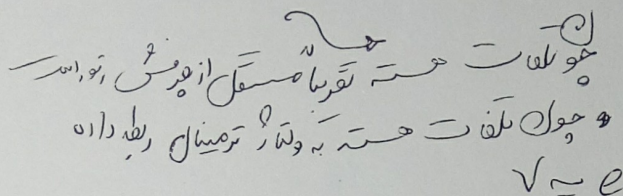 چون تلفات هسته تقریباً مستقل از چرخش روتور است
و چون تلفات هسته به ولتاژ ترمینال ربطه داده
e ≈ V